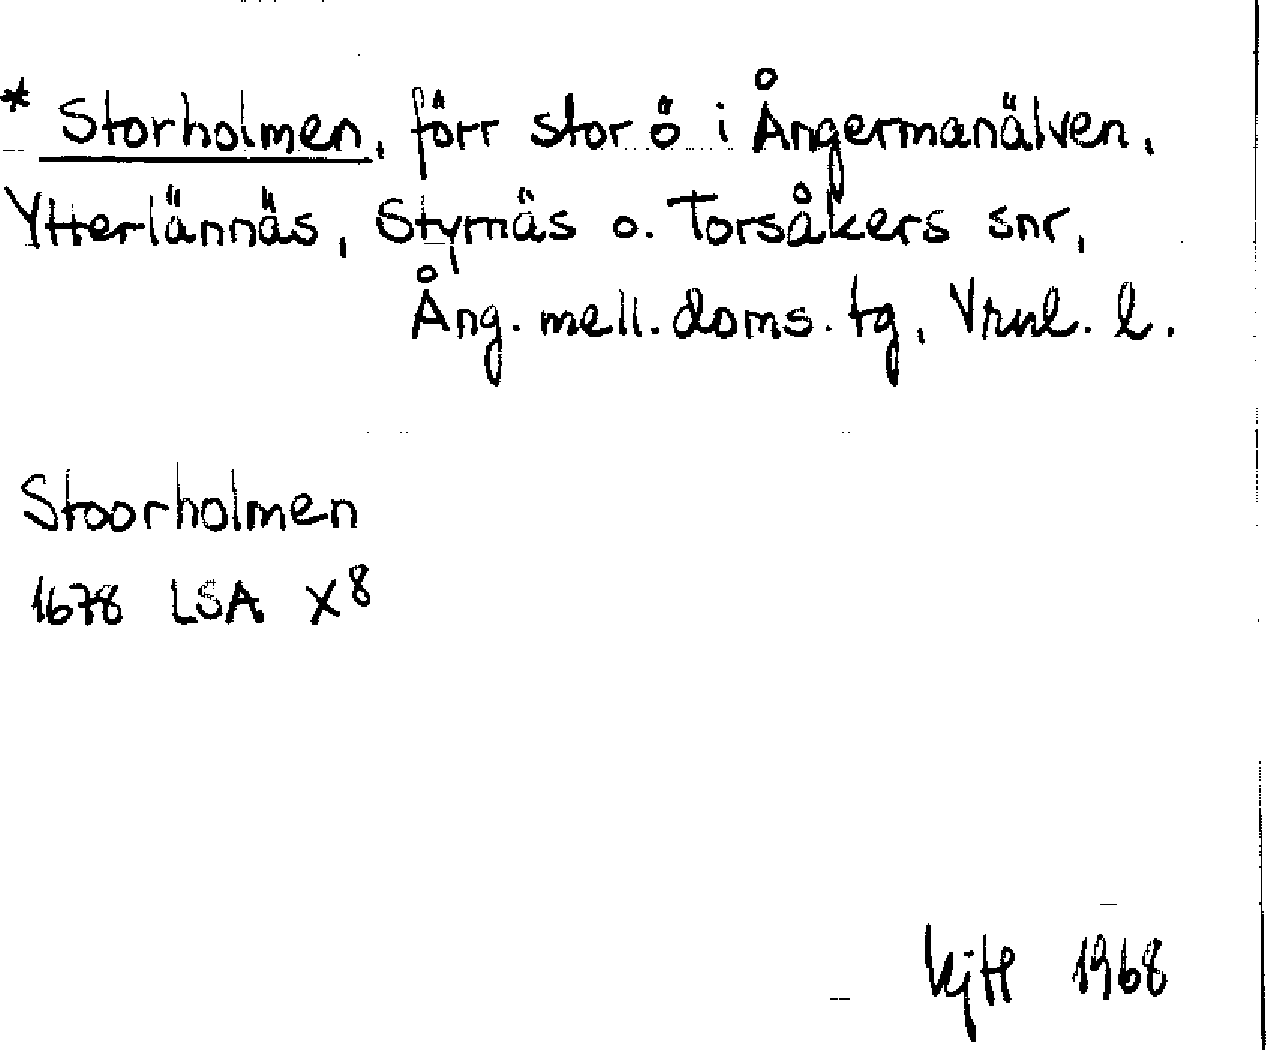 * Storholmen, förr stor ö i Ångermanälven,
Ytterlännäs, Styrnäs o. Torsåkers snr,
Ång. mell. doms. tg, Vrnl. l.
Stoorholmen
1678 LSA X8
1968